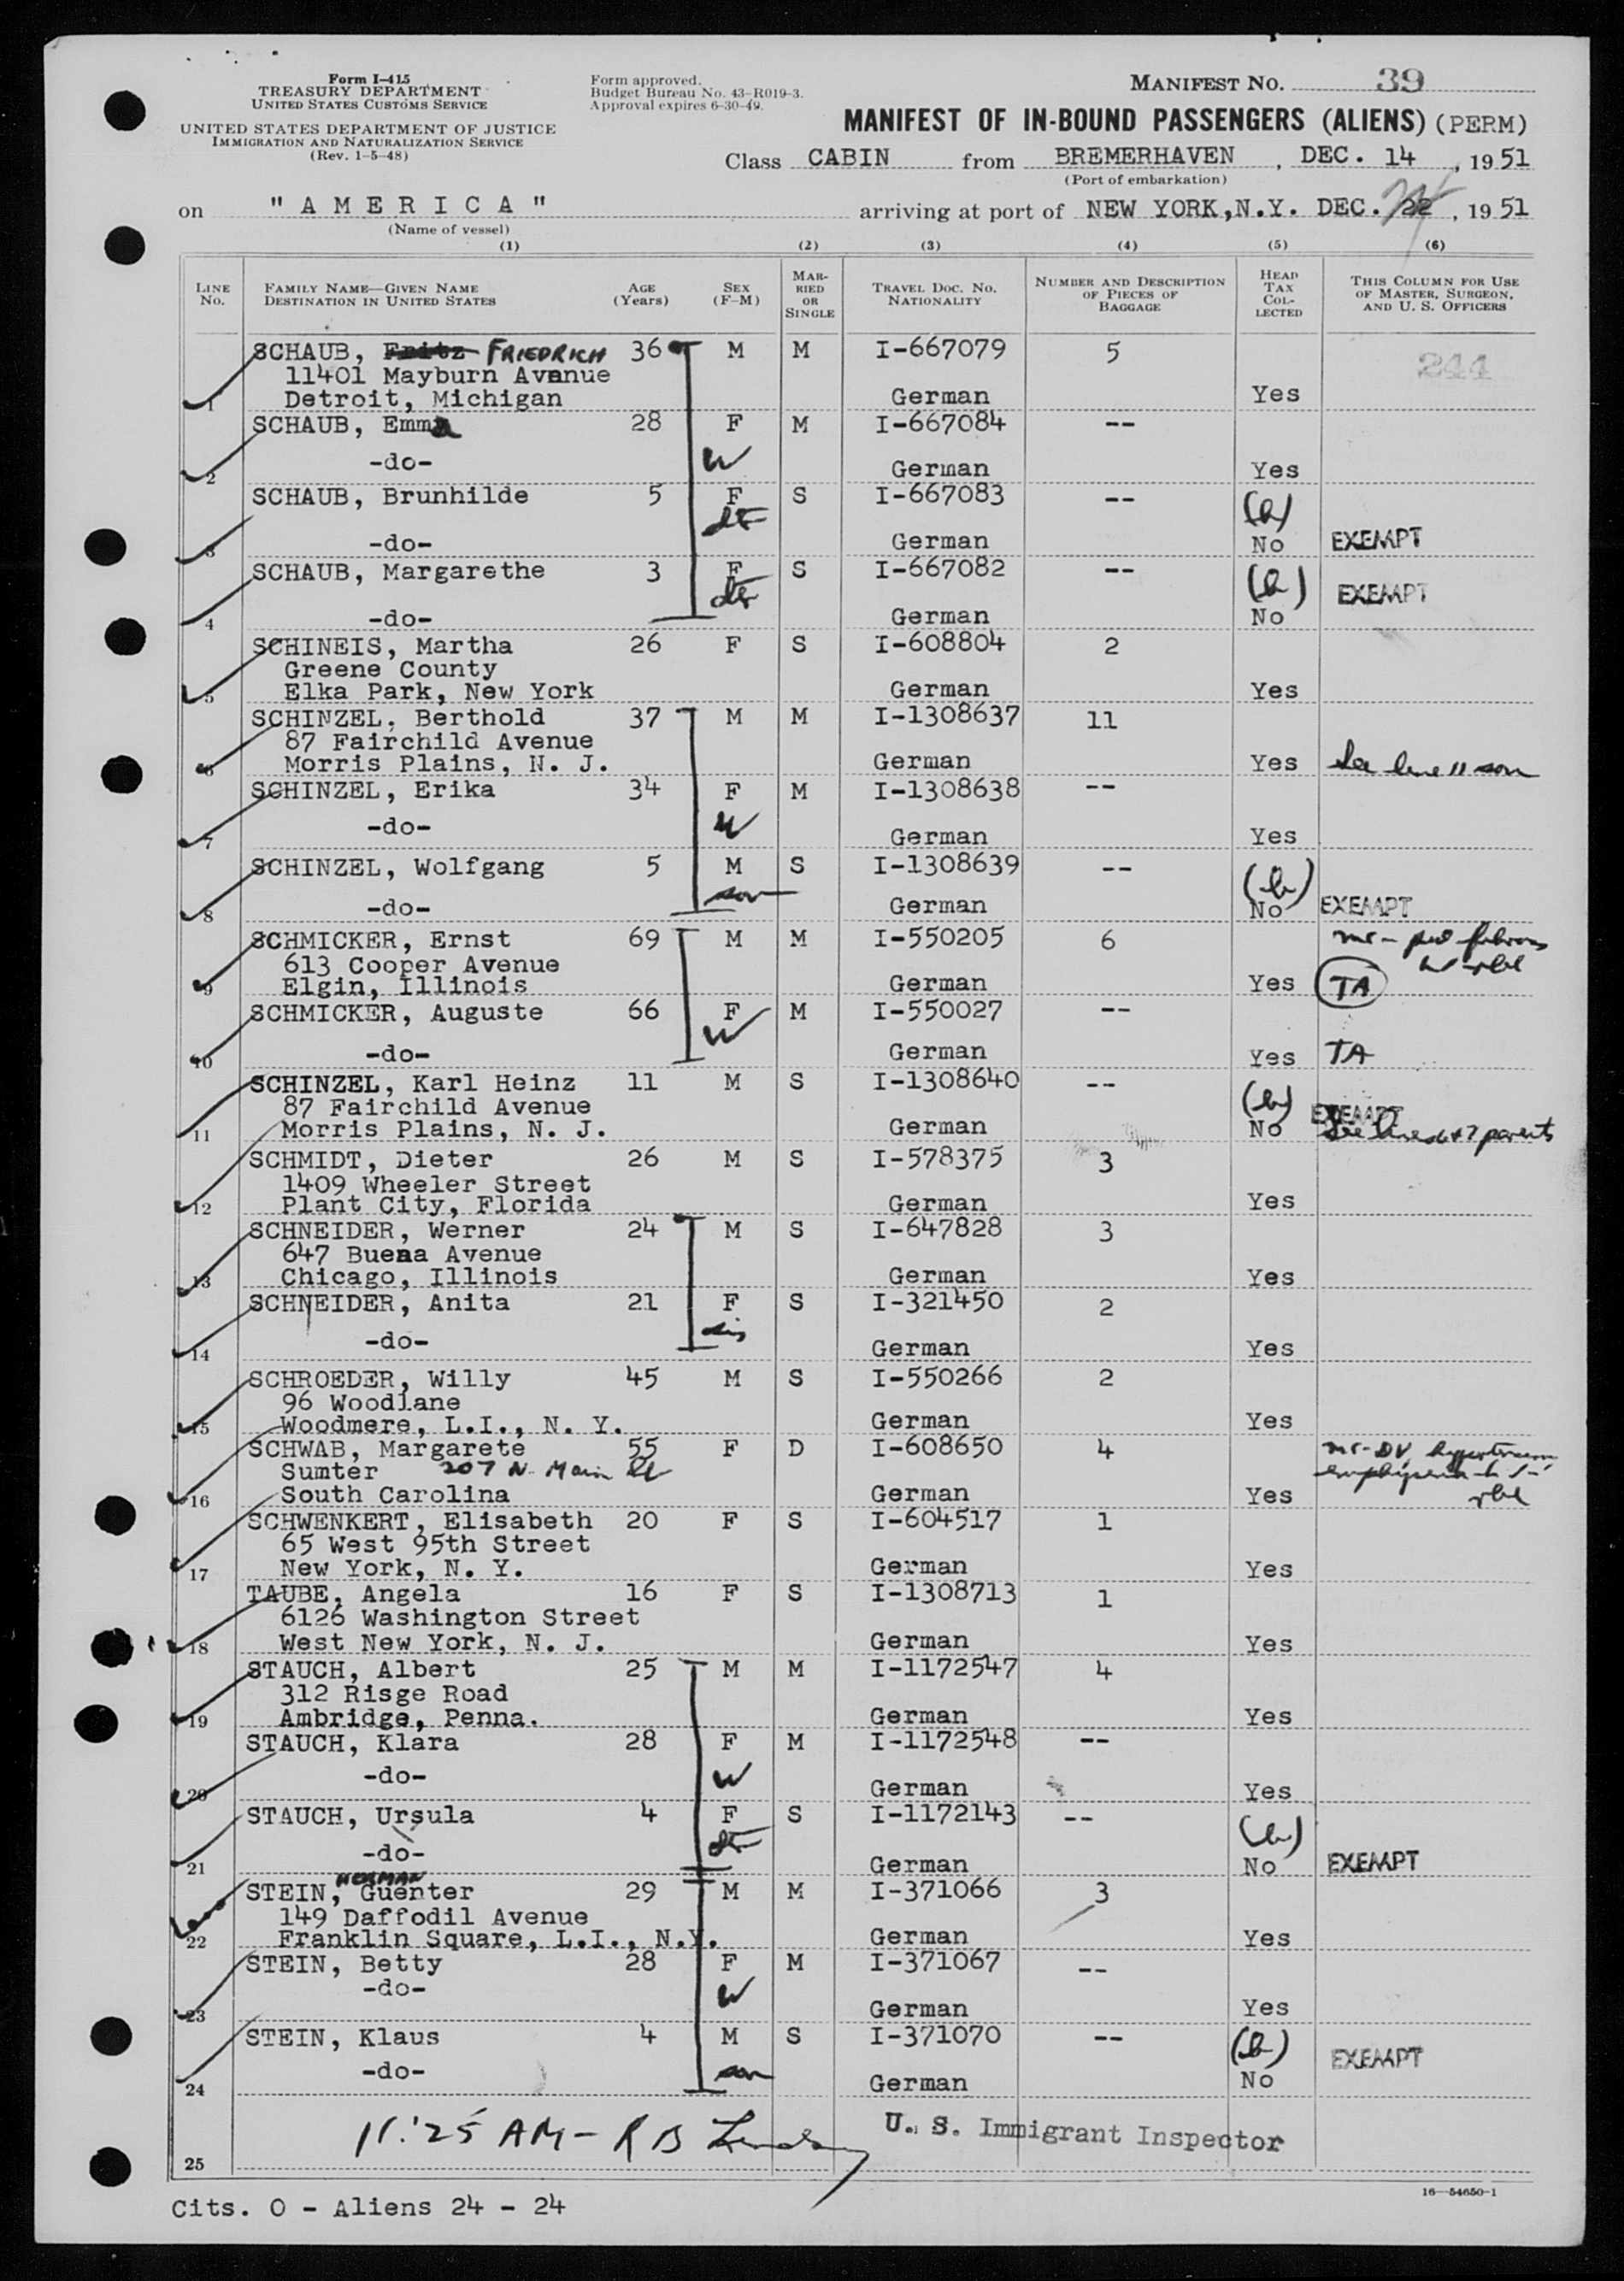 Form I-415
TREASURY DEPARTMENT
UNITED STATES CUSTOMS SERVICE
UNITED STATES DEPARTMENT OF JUSTICE
IMMIGRATION AND NATURALIZATION SERVICE
(Rev. 1-5-48)
Form approved.
Budget Bureau No. 43-R019-3.
Approval expires 6-30-49.
MANIFEST NO. 39
MANIFEST OF IN-BOUND PASSENGERS (ALIENS) (PERM)
Class CABIN from BREMERHAVEN, DEC. 14, 1951
(Port of embarkation)
on "AMERICA" arriving at port of NEW YORK, N.Y. DEC. 22, 1951
(Name of vessel)
(1) (2) (3) (4) (5) (6)
LINE No. FAMILY NAME—GIVEN NAME DESTINATION IN UNITED STATES AGE (Years) SEX (F-M) MARRIED OR SINGLE TRAVEL DOC. NO. NATIONALITY NUMBER AND DESCRIPTION OF PIECES OF BAGGAGE HEAD TAX COLLECTED THIS COLUMN FOR USE OF MASTER, SURGEON, AND U. S. OFFICERS
SCHAUB, Fritz FRIEDRICH 36 M M I-667079 5
11401 Mayburn Avenue 244
1 Detroit, Michigan German Yes
SCHAUB, Emma 28 F M I-667084 --
-do- W
2 German Yes
SCHAUB, Brunhilde 5 F S I-667083 --
dtr (b)
3 -do- German No EXEMPT
SCHAUB, Margarethe 3 F S I-667082 --
dtr (b) EXEMPT
4 -do- German No
SCHINEIS, Martha 26 F S I-608804 2
Greene County
5 Elka Park, New York German Yes
SCHINZEL, Berthold 37 M M I-1308637 11
87 Fairchild Avenue
6 Morris Plains, N. J. German Yes See line 11 son
SCHINZEL, Erika 34 F M I-1308638 --
-do- W
7 German Yes
SCHINZEL, Wolfgang 5 M S I-1308639 --
son (b)
8 -do- German No EXEMPT
SCHMICKER, Ernst 69 M M I-550205 6
613 Cooper Avenue
9 Elgin, Illinois German Yes TA
SCHMICKER, Auguste 66 F M I-550027 --
W
10 -do- German Yes TA
SCHINZEL, Karl Heinz 11 M S I-1308640 --
87 Fairchild Avenue (b) EXEMPT
11 Morris Plains, N. J. German No See lines 6+7 parents
SCHMIDT, Dieter 26 M S I-578375 3
1409 Wheeler Street
12 Plant City, Florida German Yes
SCHNEIDER, Werner 24 M S I-647828 3
647 Buena Avenue
13 Chicago, Illinois German Yes
SCHNEIDER, Anita 21 F S I-321450 2
-do- sis
14 German Yes
SCHROEDER, Willy 45 M S I-550266 2
96 Woodlane
15 Woodmere, L.I., N. Y. German Yes
SCHWAB, Margarete 55 F D I-608650 4
Sumter 207 N. Main St
16 South Carolina German Yes
SCHWENKERT, Elisabeth 20 F S I-604517 1
65 West 95th Street
17 New York, N. Y. German Yes
TAUBE, Angela 16 F S I-1308713 1
6126 Washington Street
18 West New York, N. J. German Yes
STAUCH, Albert 25 M M I-1172547 4
312 Risge Road
19 Ambridge, Penna. German Yes
STAUCH, Klara 28 F M I-1172548 --
-do- W
20 German Yes
STAUCH, Ursula 4 F S I-1172143 --
-do- dtr (b)
21 German No EXEMPT
HERMAN
STEIN, Guenter 29 M M I-371066 3
149 Daffodil Avenue
22 Franklin Square, L.I., N.Y. German Yes
STEIN, Betty 28 F M I-371067 --
-do- W
23 German Yes
STEIN, Klaus 4 M S I-371070 --
-do- son (b) EXEMPT
24 German No
11:25 AM - R B U. S. Immigrant Inspector
25
16—54650-1
Cits. 0 - Aliens 24 - 24